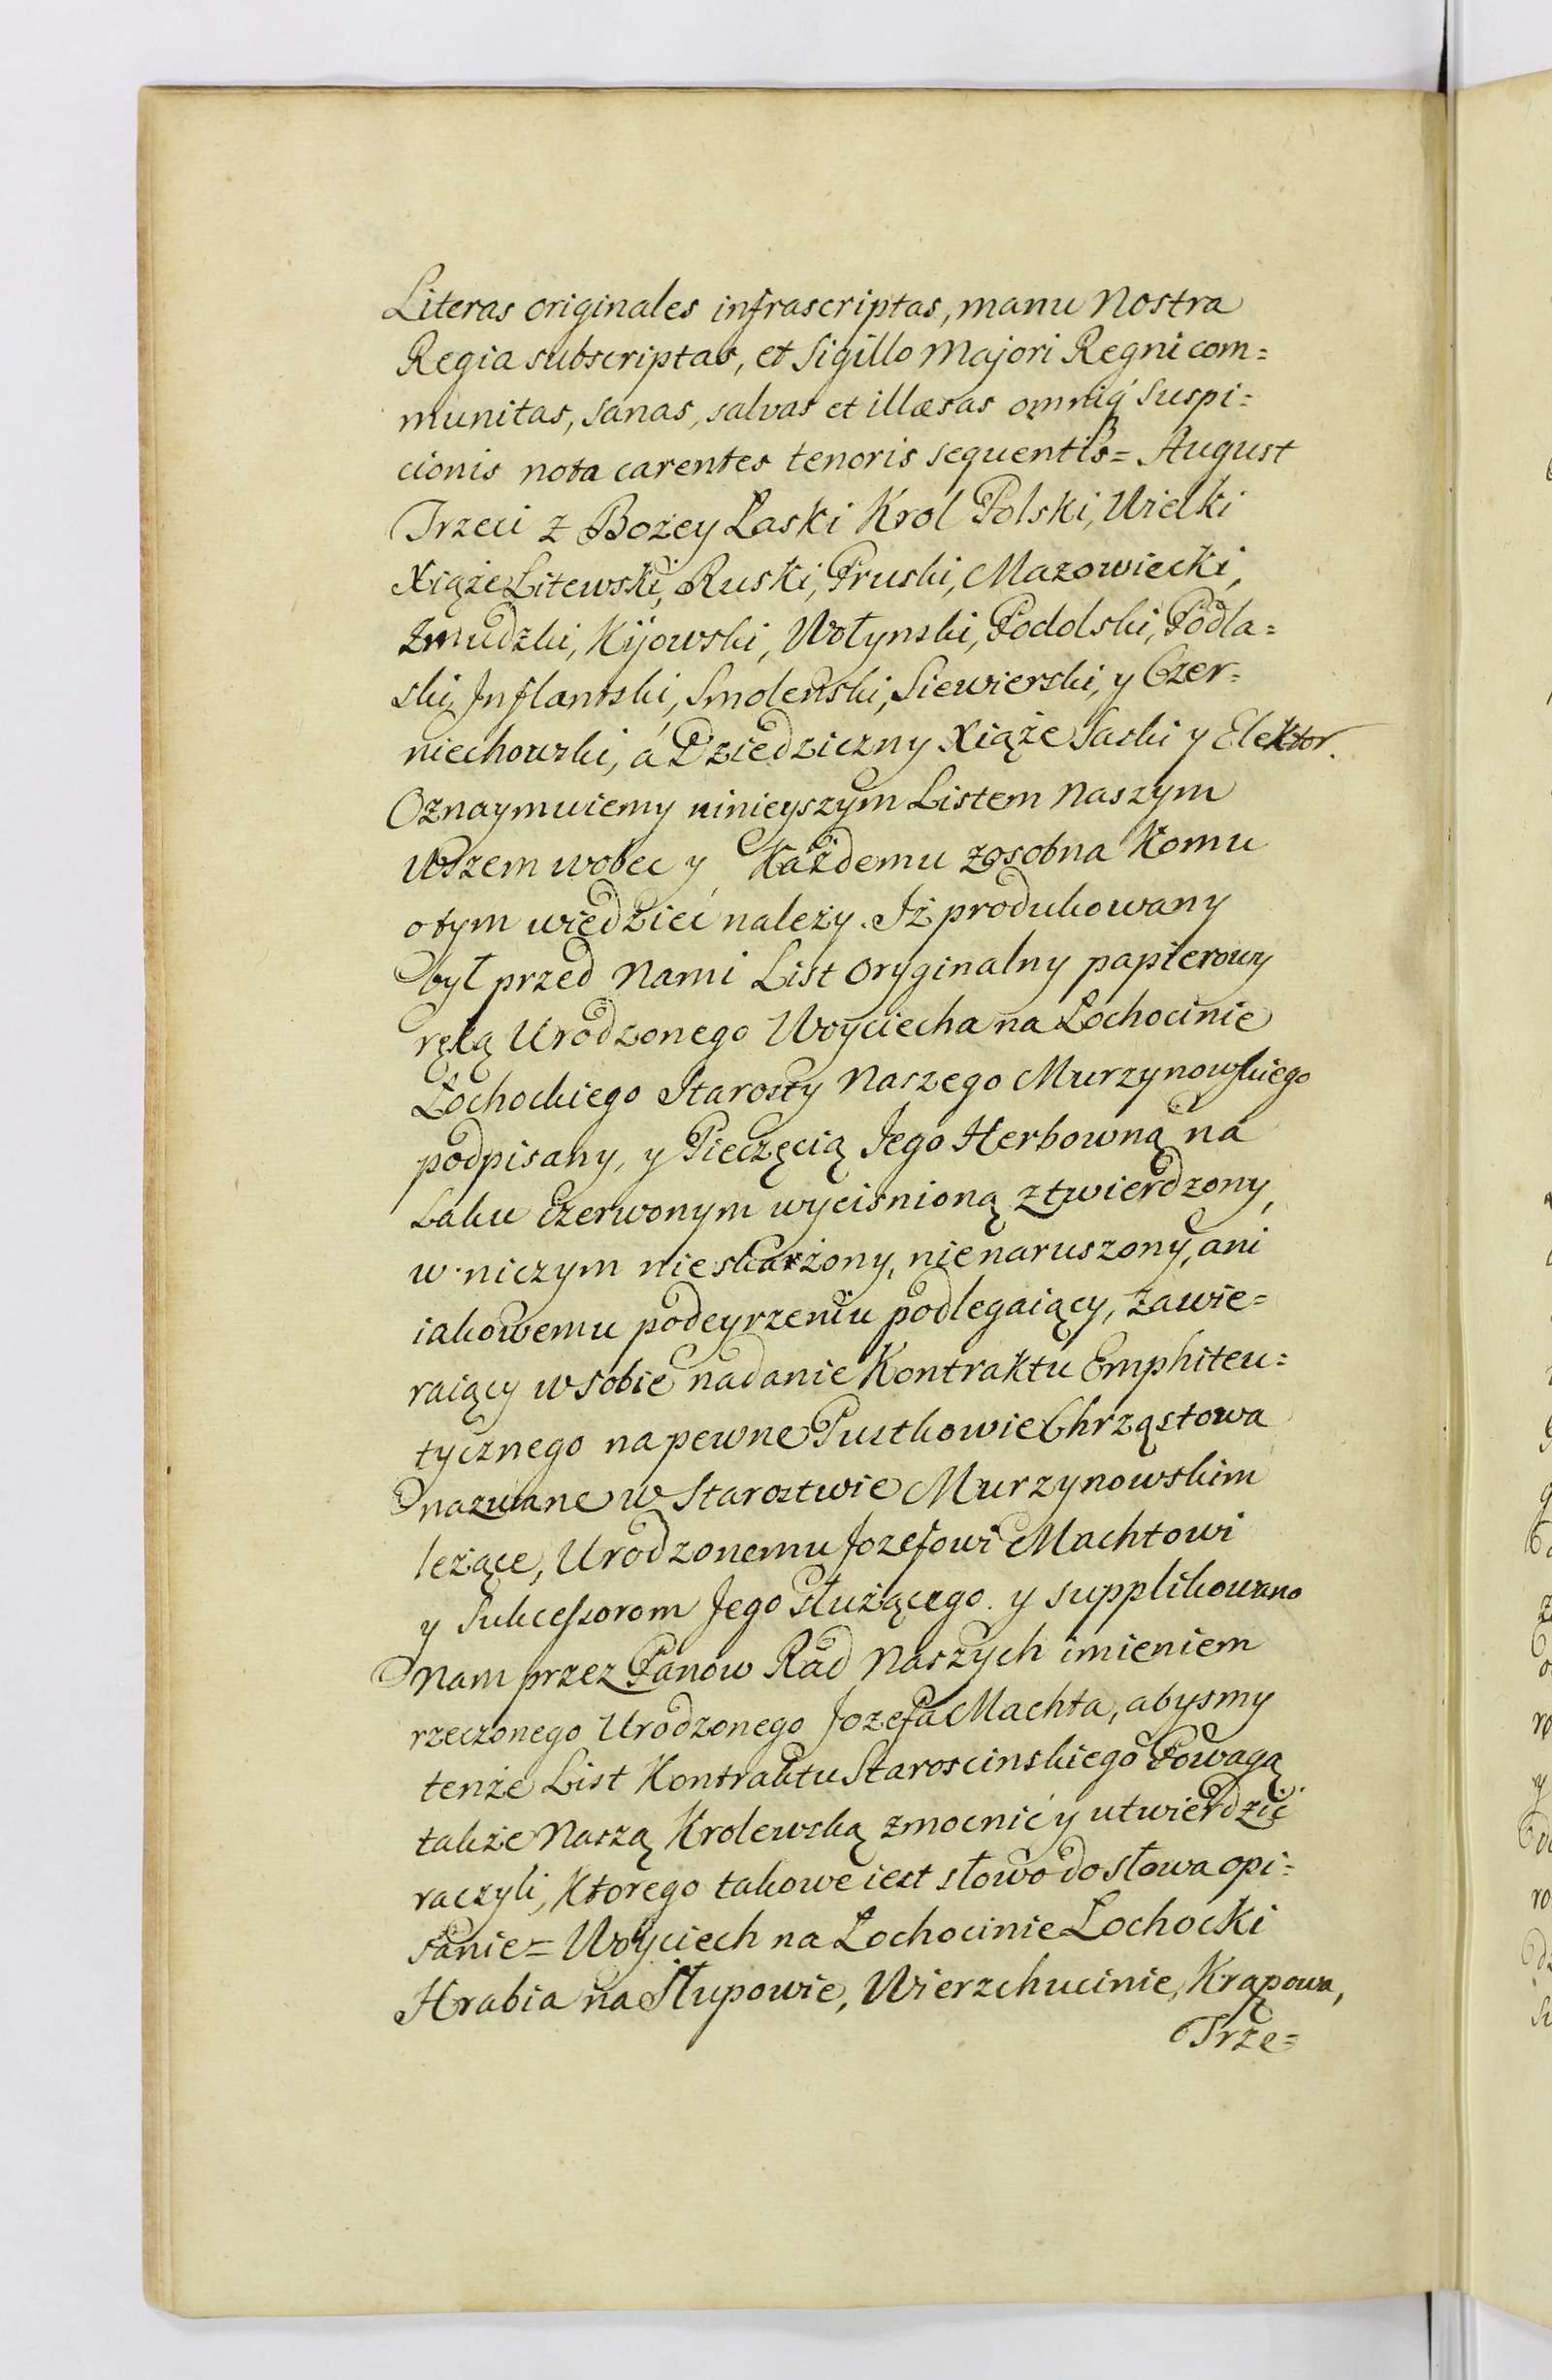 Literas originales infrascriptas, manu Nostra
Regia subscriptas, et Sigillo Majori Regni com=
munitas, sanas, salvas et illæsas omniq́ suspi=
cionis nota carentes tenoris sequentis= August
Trzeci z Bożey Łaski Krol Polski, Wielki
Xiąże Litewski, Ruski, Pruski, Mazowiecki,
Zmudzki, Kijowski, Wołynski, Podolski, Podla=
ski, Inflantski, Smolenski, Siewierski, y Czer=
niechowski, á Dziedziczny Xiąże Saski y Elektor.
Oznaymuiemy ninieyszym Listem Naszym
Wszem wobec y Każdemu zosobna Komu
otym wiedzieć należy. Iż produkowany
był przed Nami List Oryginalny papierowy
ręką Urodzonego Woyciecha na Łochocinie
Łochockiego Starosty Naszego Murzynowskiego
podpisany, y Pieczęcią Jego Herbowną na
Laku Czerwonym wycisnioną ztwierdzony,
w niczym nieskażony, nienaruszony, ani
iakowemu podeyrzeniu podlegaiący, zawie=
raiący w sobie nadanie Kontraktu Emphiteu=
tycznego na pewne Pustkowie Chrząstowa
nazwane w Starostwie Murzynowskim
leżące, Urodzonemu Jozefowi Machtowi
y Sukcessorom Jego służącego. y supplikowano
Nam przez Panow Rad Naszych imieniem
rzeczonego Urodzonego Jozefa Machta, abysmy
tenże List Kontraktu Staroscinskiego Powagą
także Naszą Krolewską zmocnić y utwierdzić
raczyli, Ktorego takowe iest słowo do słowa opi=
sanie= Woyciech na Łochocinie Łochocki
Hrabia na Słupowie, Wierzchucinie, Krąpowa,
Trze=